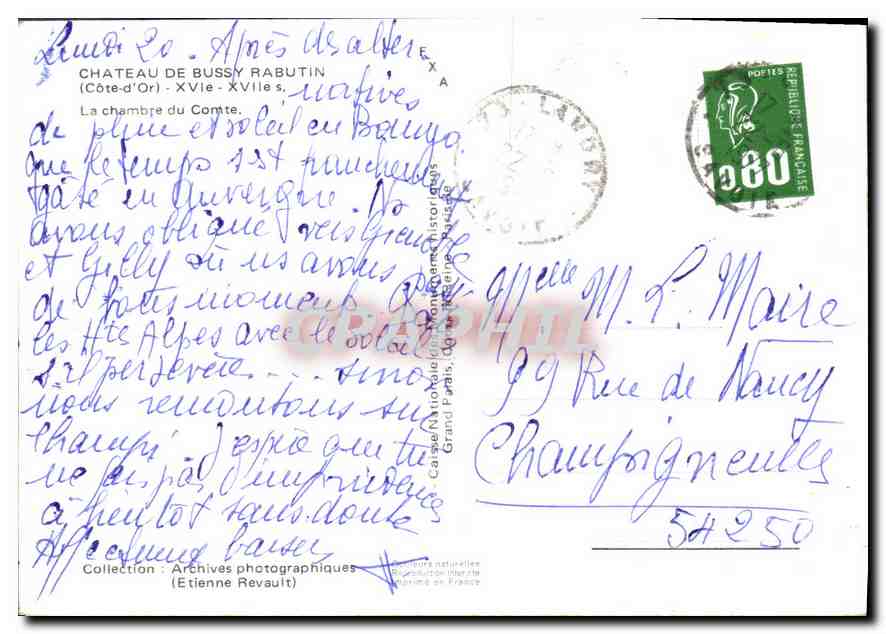 Lundi 20 . Après des alter
natives
CHATEAU DE BUSSY RABUTIN
(Côte-d'Or) - XVIe - XVIIe s.
La chambre du Comte.
de pluie et soleil en Bourgo.
que le temps s'est franchement
gâté en Auvergne. Ns
avons obliqué vers Grenoble
et Gilly où ns avons passé
de bons moments
les Htes Alpes avec le soleil
s'il persévère .... sinon
nous remontons sur
Champi J'espère que tu
ne fais pas d'imprudences
à bientôt sans doute
Affectueux baisers
Collection : Archives photographiques
(Etienne Revault)
EXA
Caisse Nationale des Monuments historiques
Grand Palais, Cours la Reine - Paris 8e
Couleurs naturelles
Reproduction interdite
Imprimé en France
POSTES
REPUBLIQUE FRANÇAISE
0.80
Mme M. L. Maire
99 Rue de Nancy
Champigneulles
54250
GRAPHIL